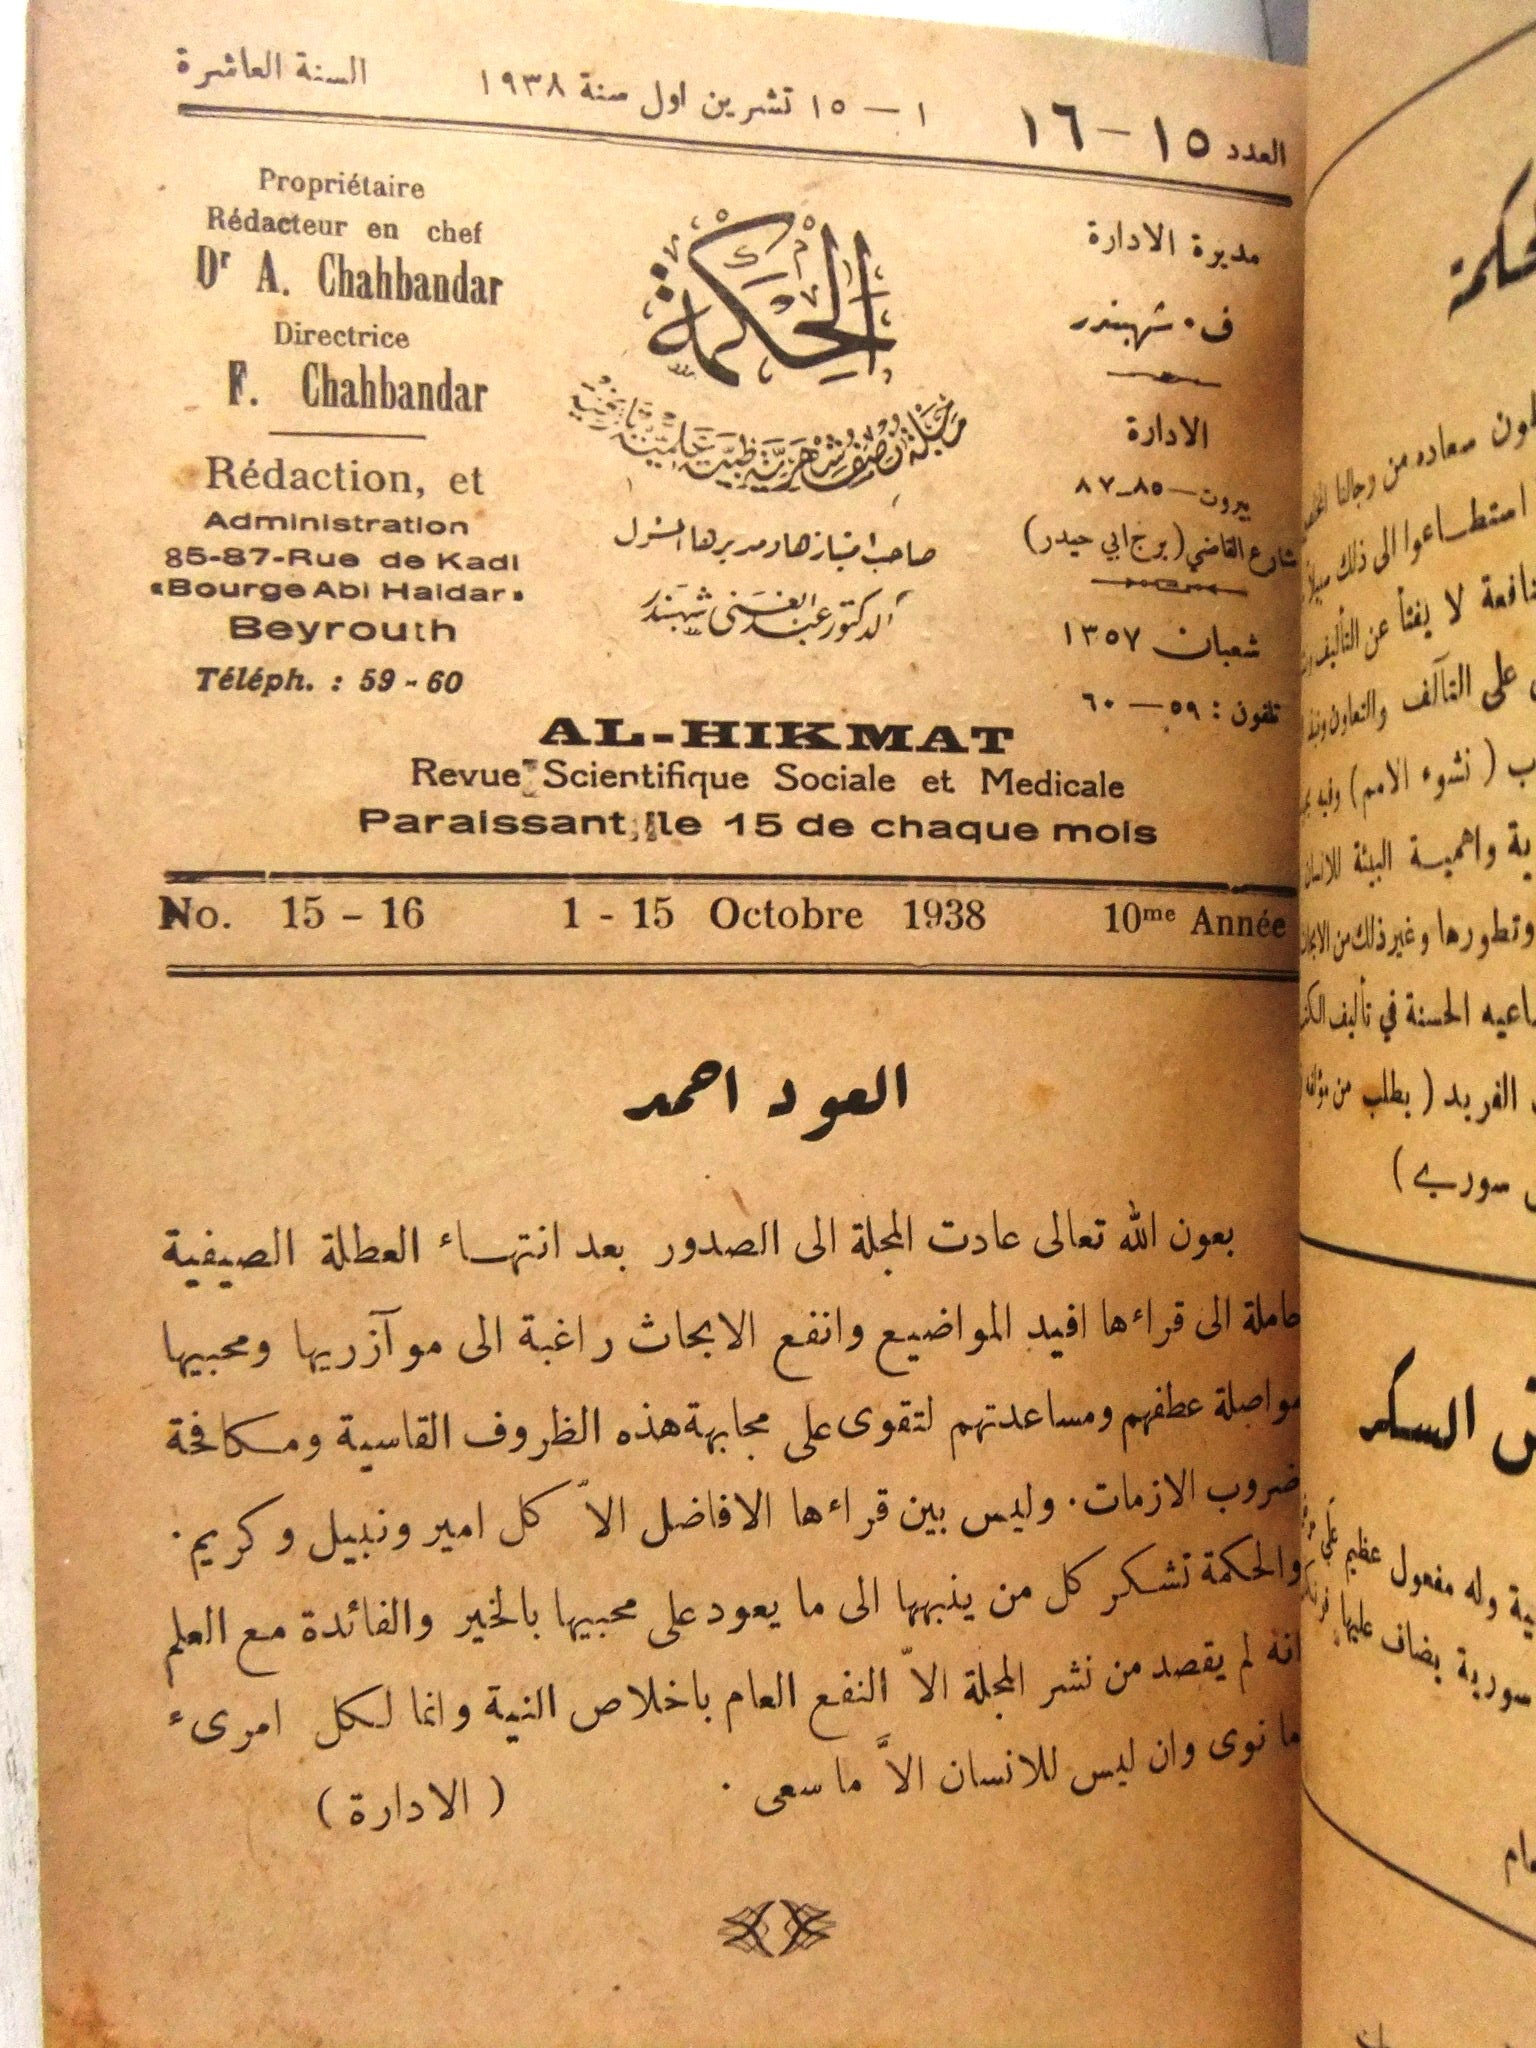 العدد ١٥ – ١٦ ١ – ١٥ تشرين اول سنة ١٩٣٨ السنة العاشرة
Propriétaire
Rédacteur en chef
Dr A. Chahbandar
Directrice
F. Chahbandar
Rédaction, et
Administration
85-87-Rue de Kadi
«Bourge Abi Haidar»
Beyrouth
Téléph. : 59 - 60
الحكمة
مجلة نصف شهرية طبية علمية تاريخية
صاحب امتيازها ومديرها المسئول
الدكتور عبد الغني شهبندر
مديرة الادارة
ف . شهبندر
الادارة
بيروت — ٨٥-٨٧
شارع القاضي (برج ابي حيدر)
شعبان ١٣٥٧
تلفون : ٥٩ — ٦٠
AL-HIKMAT
Revue Scientifique Sociale et Medicale
Paraissant le 15 de chaque mois
No. 15 - 16 1 - 15 Octobre 1938 10me Année
العود احمد
بعون الله تعالى عادت المجلة الى الصدور بعد انتهاء العطلة الصيفية
حاملة الى قراءها افيد المواضيع وانفع الابحاث راغبة الى موآزريها ومحبيها
مواصلة عطفهم ومساعدتهم لتقوى على مجابهة هذه الظروف القاسية ومكافحة
ضروب الازمات . وليس بين قراءها الافاضل الاّ كل امير ونبيل وكريم .
والحكمة تشكر كل من ينبهها الى ما يعود على محبيها بالخير والفائدة مع العلم
انه لم يقصد من نشر المجلة الاّ النفع العام باخلاص النية وانما لكل امرىء
ما نوى وان ليس للانسان الاَّ ما سعى . ( الادارة )
الحكمة
سعاده من رجالنا
استطاعوا الى ذلك سبيلا
لا يفتأ عن التأليف
على التآلف والتعاون
( نشوء الامم ) وفيه
واهمية البيئة للانسان
وتطورها وغير ذلك من الابحاث
الحسنة في تأليف
الفريد ( يطلب من مؤلفه
سوريه )
السكر
وله مفعول عظيم على
سورية يضاف عليها